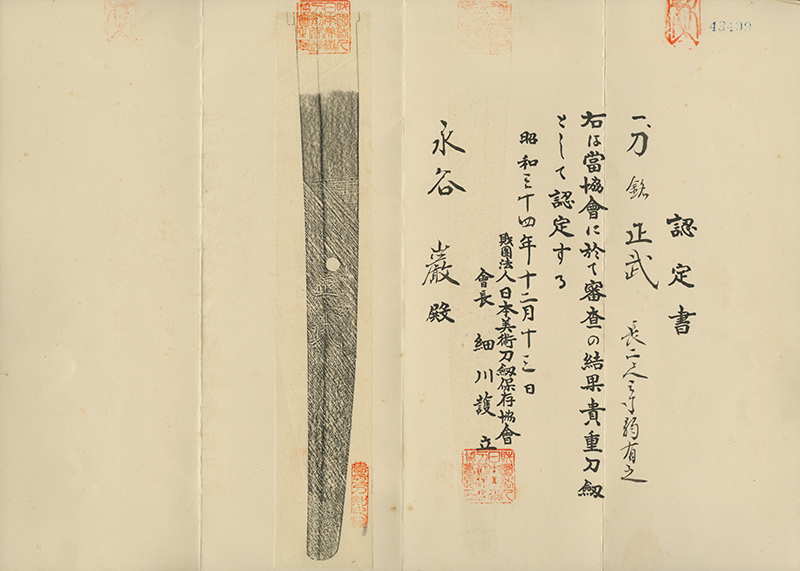 43499
認定書
一、刀 銘 正武 長二尺三寸弱有之
右は當協會に於て審査の結果貴重刀剱
として認定する
昭和三十四年十二月十三日
財團法人日本美術刀剱保存協會
會長 細川護立
永谷 巖殿